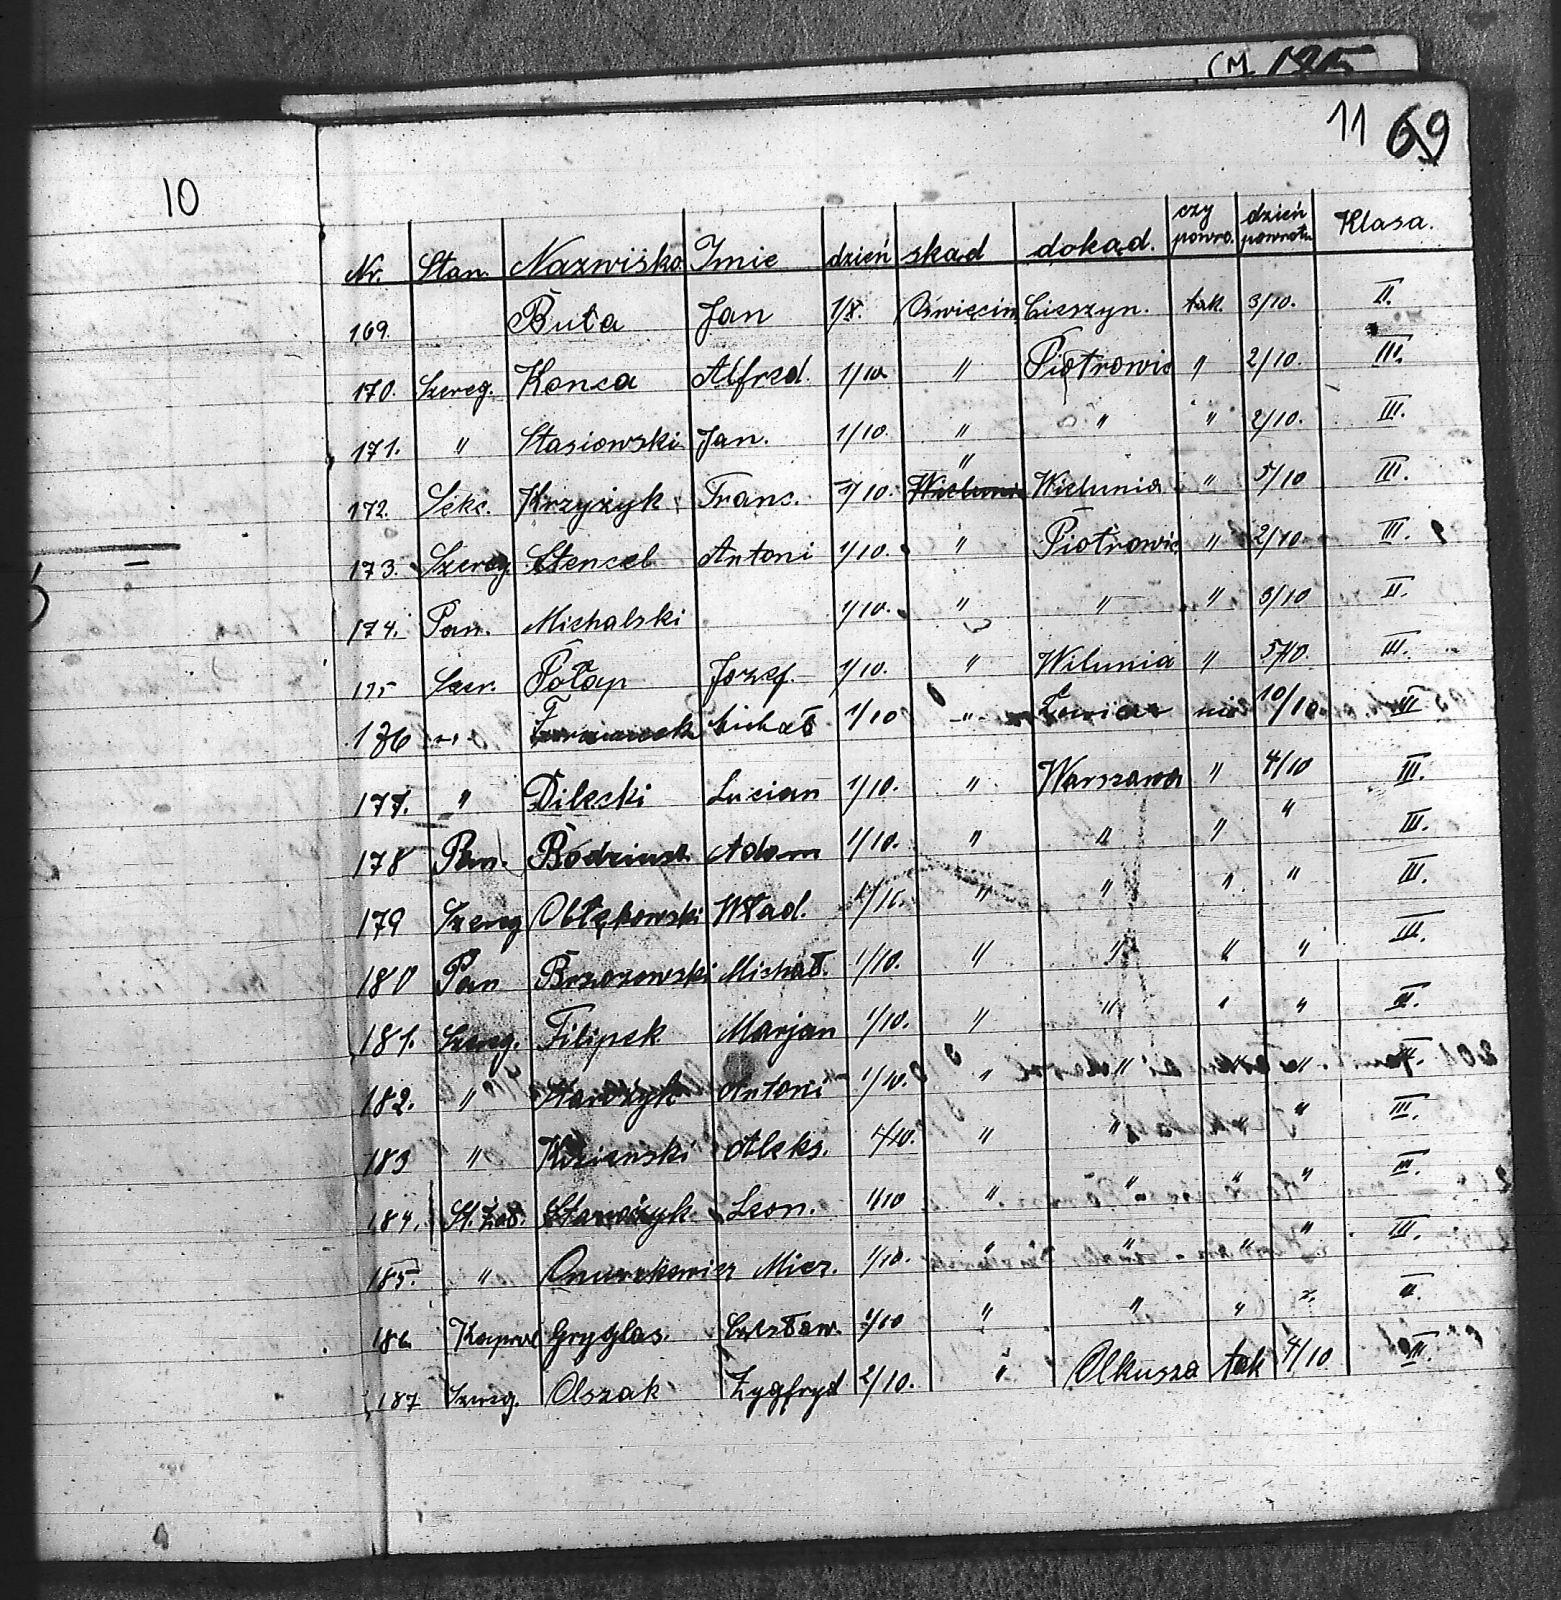 11 69
10
Nr. Stan. Nazwisko Imie dzień skąd dokąd. czy powro. dzień powrotu Klasa.
169. Buta Jan 1/8. Oświęcim Cieszyn. tak. 3/10. II.
170. Szereg. Konca Alfred. 1/10. " Piotrowic " 2/10. III.
171. " Stasiowski Jan. 1/10. " " " 2/10. III.
172. Sekc. Krzyżyk Franc. 1/10. " Wielunia " 5/10 III.
173. Szereg Stencel Antoni 1/10. " Piotrowic " 2/10. III.
174. Pan. Michalski 1/10. " " " 3/10 II.
175 Szer. Połap Jozef. 1/10. " Wilunia " 5/10. III.
176 " Michał 1/10 " nie 10/10. III
177. " Dilecki Lucian 1/10. " Warszawa " 4/10 III.
178 Pan. Adam 1/10. " " " " III.
179 Szereg Obłękowski Wład. " " " " III.
180 Pan Brzozowski Michał. 1/10. " " " " III.
181. Szereg. Filipek Marjan 1/10. " " " " II.
182. " Antoni 1/10. " " " "
183 " Aleks. 1/10. " " " " III.
184. Leon. 1/10 " " " " III.
185. " Miecz. 1/10. " " " " III.
186. Kaprol Gryglas. Czesław. 1/10 " " " " II.
187 Szereg. Olszak Zygfryd 2/10. " Olkusza tak 4/10 III.